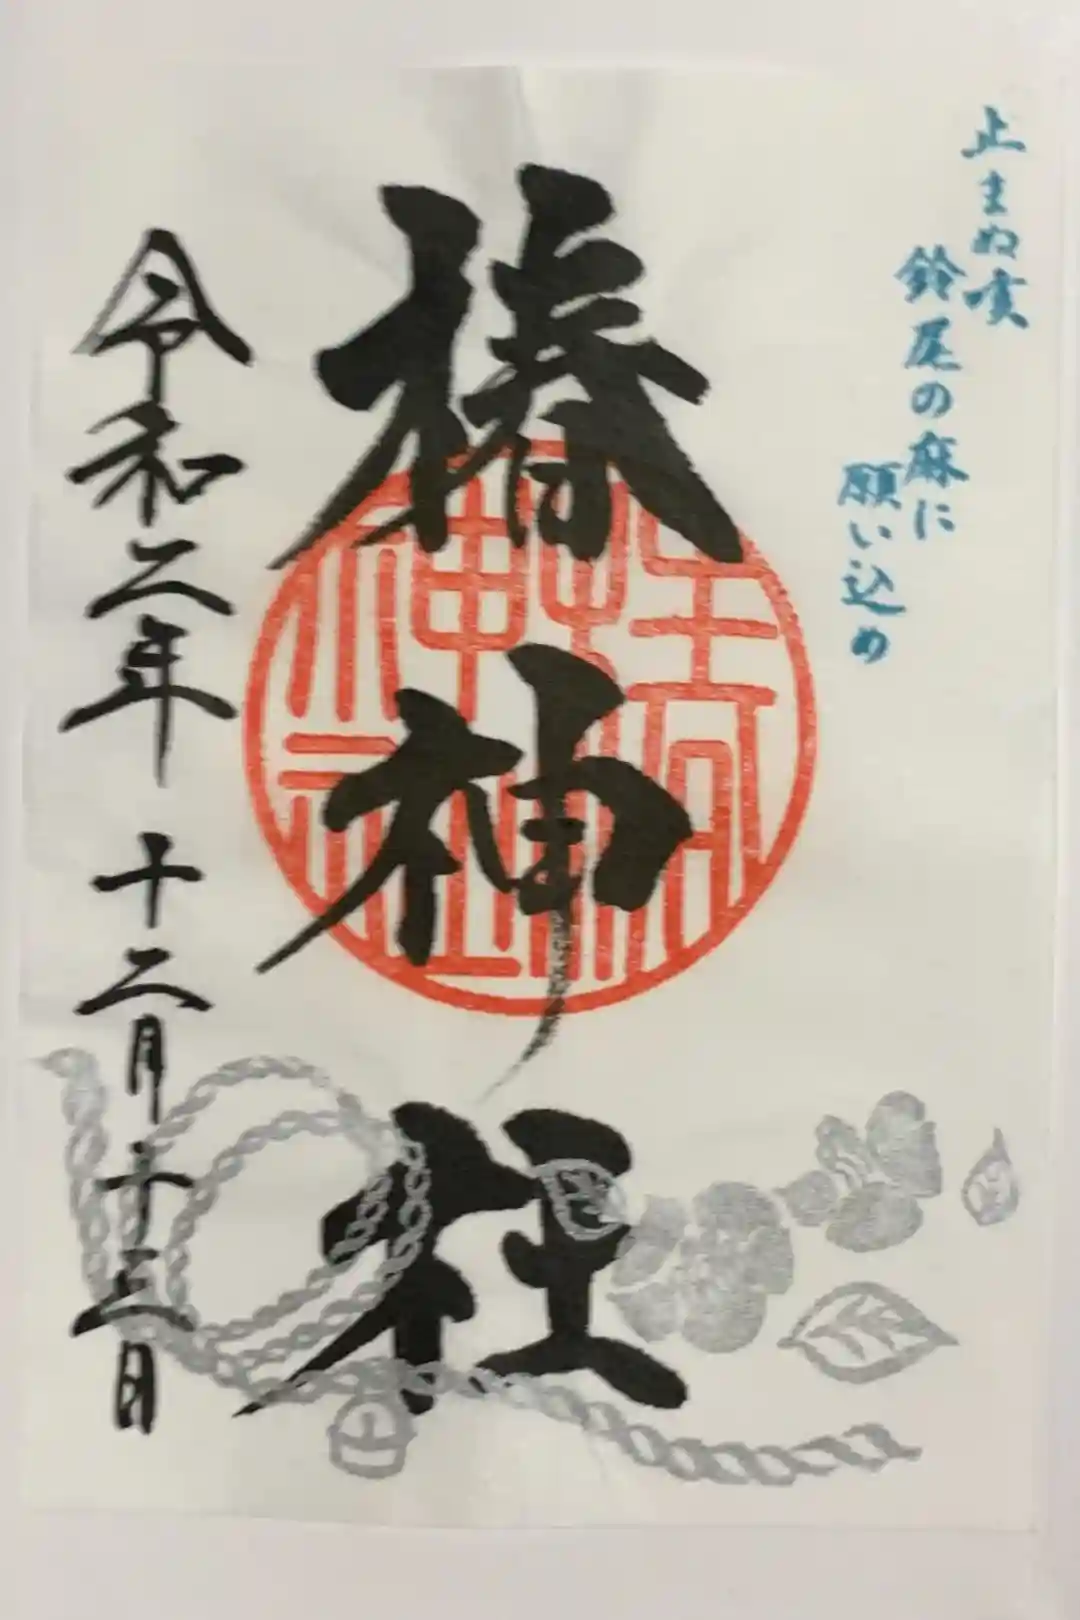 止まぬ
鈴尾の麻に
願い込め
椿神社
令和二年 十二月十三日